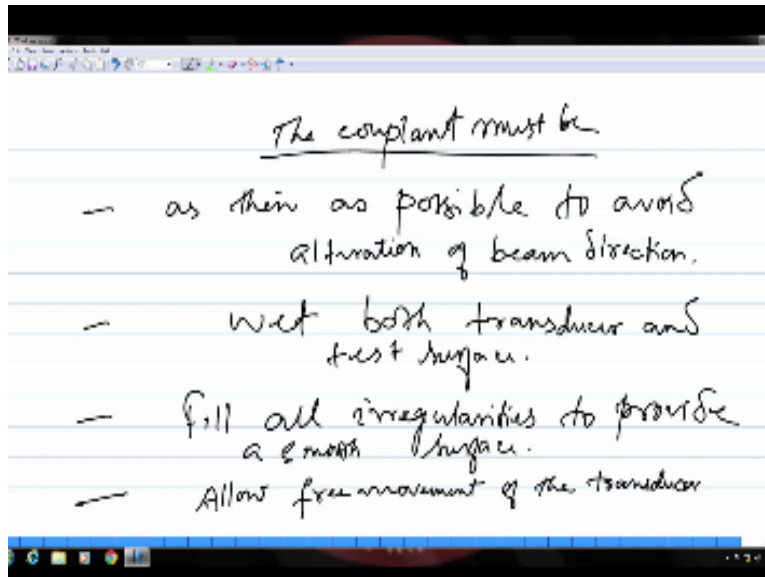 The couplant must be
— as thin as possible to avoid
alteration of beam direction.
— wet both transducer and
test surface.
— fill all irregularities to provide
a smooth surface.
— Allow free movement of the transducer